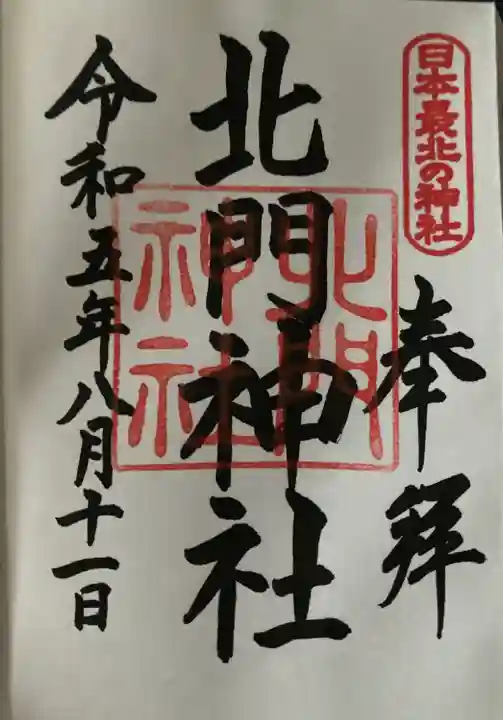 日本最北の神社
奉拜
北門神社
北門
神社
令和五年八月十一日